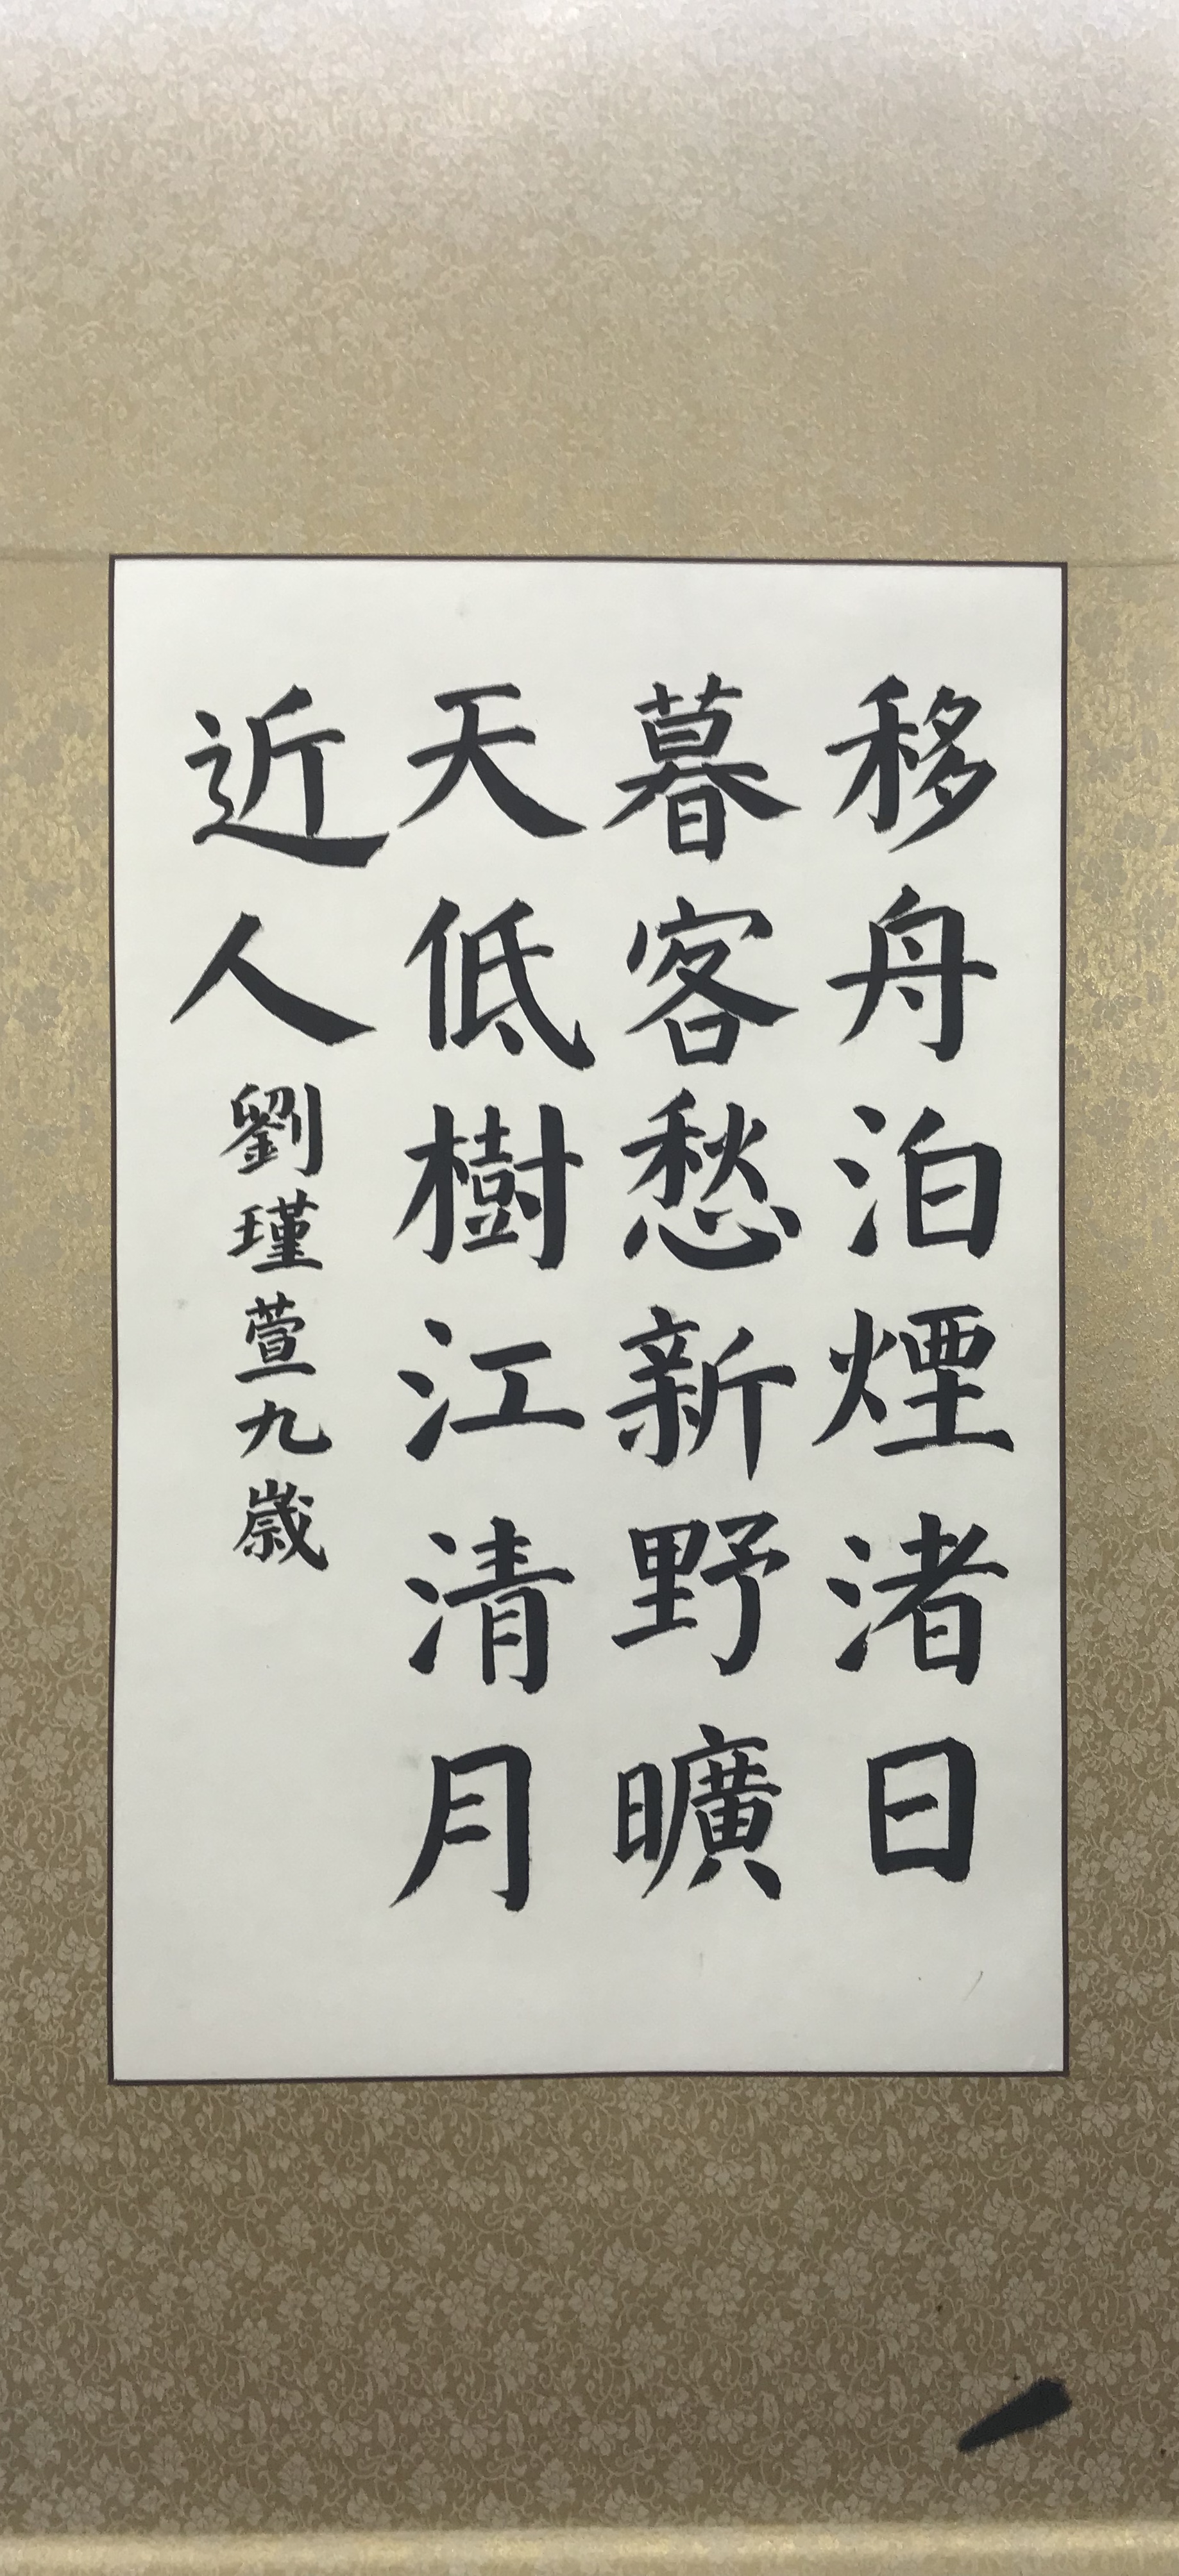 移舟泊煙渚日
暮客愁新野曠
天低樹江清月
近人
劉瑾萱九歲